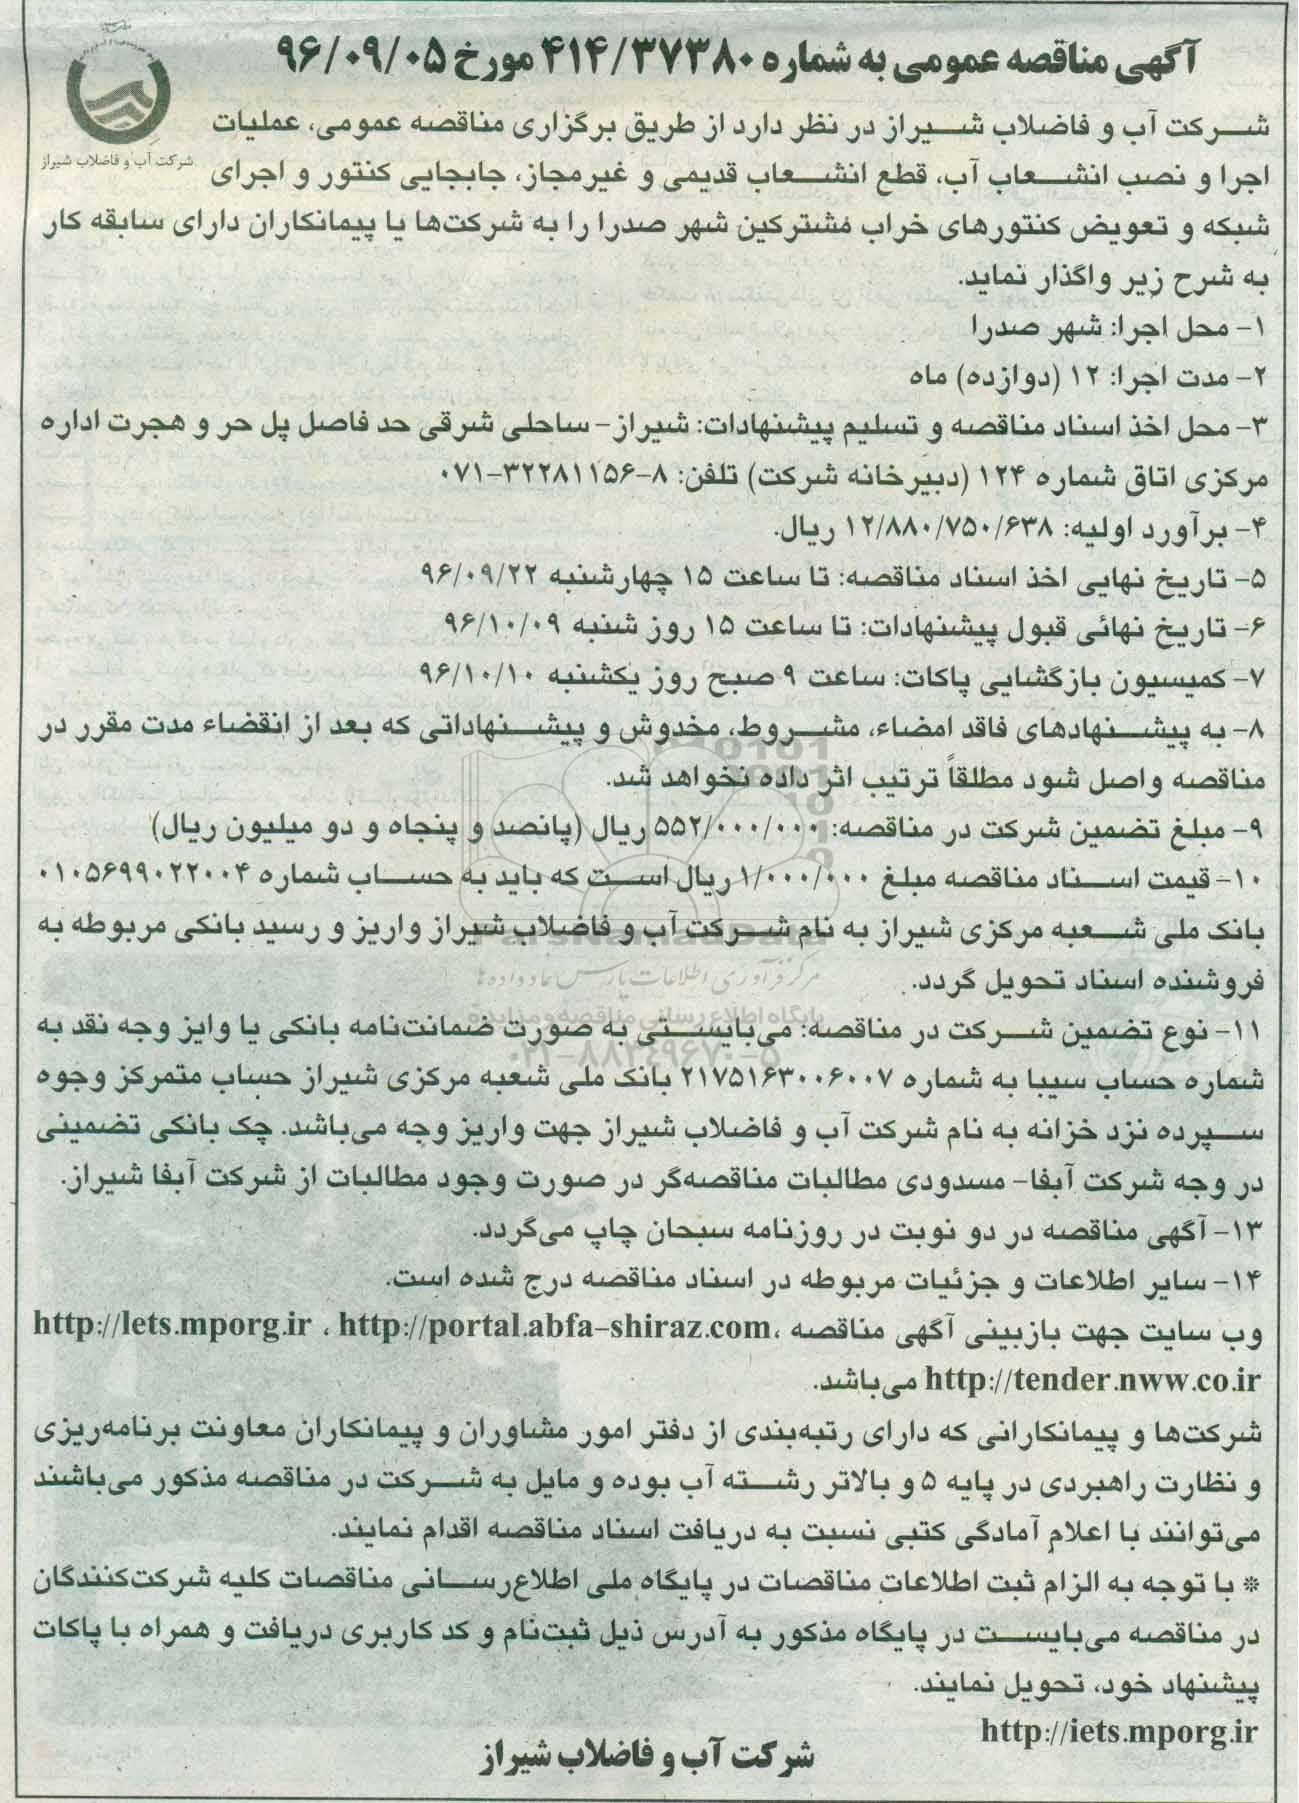 آگهی مناقصه عمومی به شماره ۴۱۴/۳۷۳۸۰ مورخ ۹۶/۰۹/۰۵
شرکت آب و فاضلاب شیراز
شرکت آب و فاضلاب شیراز در نظر دارد از طریق برگزاری مناقصه عمومی، عملیات
اجرا و نصب انشعاب آب، قطع انشعاب قدیمی و غیرمجاز، جابجایی کنتور و اجرای
شبکه و تعویض کنتورهای خراب مشترکین شهر صدرا را به شرکت‌ها یا پیمانکاران دارای سابقه کار
به شرح زیر واگذار نماید.
۱- محل اجرا: شهر صدرا
۲- مدت اجرا: ۱۲ (دوازده) ماه
۳- محل اخذ اسناد مناقصه و تسلیم پیشنهادات: شیراز- ساحلی شرقی حد فاصل پل حر و هجرت اداره
مرکزی اتاق شماره ۱۲۴ (دبیرخانه شرکت) تلفن: ۸-۳۲۲۸۱۱۵۶-۰۷۱
۴- برآورد اولیه: ۱۲/۸۸۰/۷۵۰/۶۳۸ ریال.
۵- تاریخ نهایی اخذ اسناد مناقصه: تا ساعت ۱۵ چهارشنبه ۹۶/۰۹/۲۲
۶- تاریخ نهائی قبول پیشنهادات: تا ساعت ۱۵ روز شنبه ۹۶/۱۰/۰۹
۷- کمیسیون بازگشایی پاکات: ساعت ۹ صبح روز یکشنبه ۹۶/۱۰/۱۰
۸- به پیشنهادهای فاقد امضاء، مشروط، مخدوش و پیشنهاداتی که بعد از انقضاء مدت مقرر در
مناقصه واصل شود مطلقاً ترتیب اثر داده نخواهد شد.
۹- مبلغ تضمین شرکت در مناقصه: ۵۵۲/۰۰۰/۰۰۰ ریال (پانصد و پنجاه و دو میلیون ریال)
۱۰- قیمت اسناد مناقصه مبلغ ۱/۰۰۰/۰۰۰ ریال است که باید به حساب شماره ۰۱۰۵۶۹۹۰۲۲۰۰۴
بانک ملی شعبه مرکزی شیراز به نام شرکت آب و فاضلاب شیراز واریز و رسید بانکی مربوطه به
فروشنده اسناد تحویل گردد.
ParsNamadData
مرکز فرآوری اطلاعات پارس نماد داده‌ها
پایگاه اطلاع رسانی مناقصه و مزایده
۰۲۱-۸۸۳۴۹۶۷۰-۵
۱۱- نوع تضمین شرکت در مناقصه: می‌بایستی به صورت ضمانت‌نامه بانکی یا وایز وجه نقد به
شماره حساب سیبا به شماره ۲۱۷۵۱۶۳۰۰۶۰۰۷ بانک ملی شعبه مرکزی شیراز حساب متمرکز وجوه
سپرده نزد خزانه به نام شرکت آب و فاضلاب شیراز جهت واریز وجه می‌باشد. چک بانکی تضمینی
در وجه شرکت آبفا- مسدودی مطالبات مناقصه‌گر در صورت وجود مطالبات از شرکت آبفا شیراز.
۱۳- آگهی مناقصه در دو نوبت در روزنامه سبحان چاپ می‌گردد.
۱۴- سایر اطلاعات و جزئیات مربوطه در اسناد مناقصه درج شده است.
وب سایت جهت بازبینی آگهی مناقصه ،http://lets.mporg.ir ، http://portal.abfa-shiraz.com
http://tender.nww.co.ir می‌باشد.
شرکت‌ها و پیمانکارانی که دارای رتبه‌بندی از دفتر امور مشاوران و پیمانکاران معاونت برنامه‌ریزی
و نظارت راهبردی در پایه ۵ و بالاتر رشته آب بوده و مایل به شرکت در مناقصه مذکور می‌باشند
می‌توانند با اعلام آمادگی کتبی نسبت به دریافت اسناد مناقصه اقدام نمایند.
* با توجه به الزام ثبت اطلاعات مناقصات در پایگاه ملی اطلاع‌رسانی مناقصات کلیه شرکت‌کنندگان
در مناقصه می‌بایست در پایگاه مذکور به آدرس ذیل ثبت‌نام و کد کاربری دریافت و همراه با پاکات
پیشنهاد خود، تحویل نمایند.
http://iets.mporg.ir
شرکت آب و فاضلاب شیراز